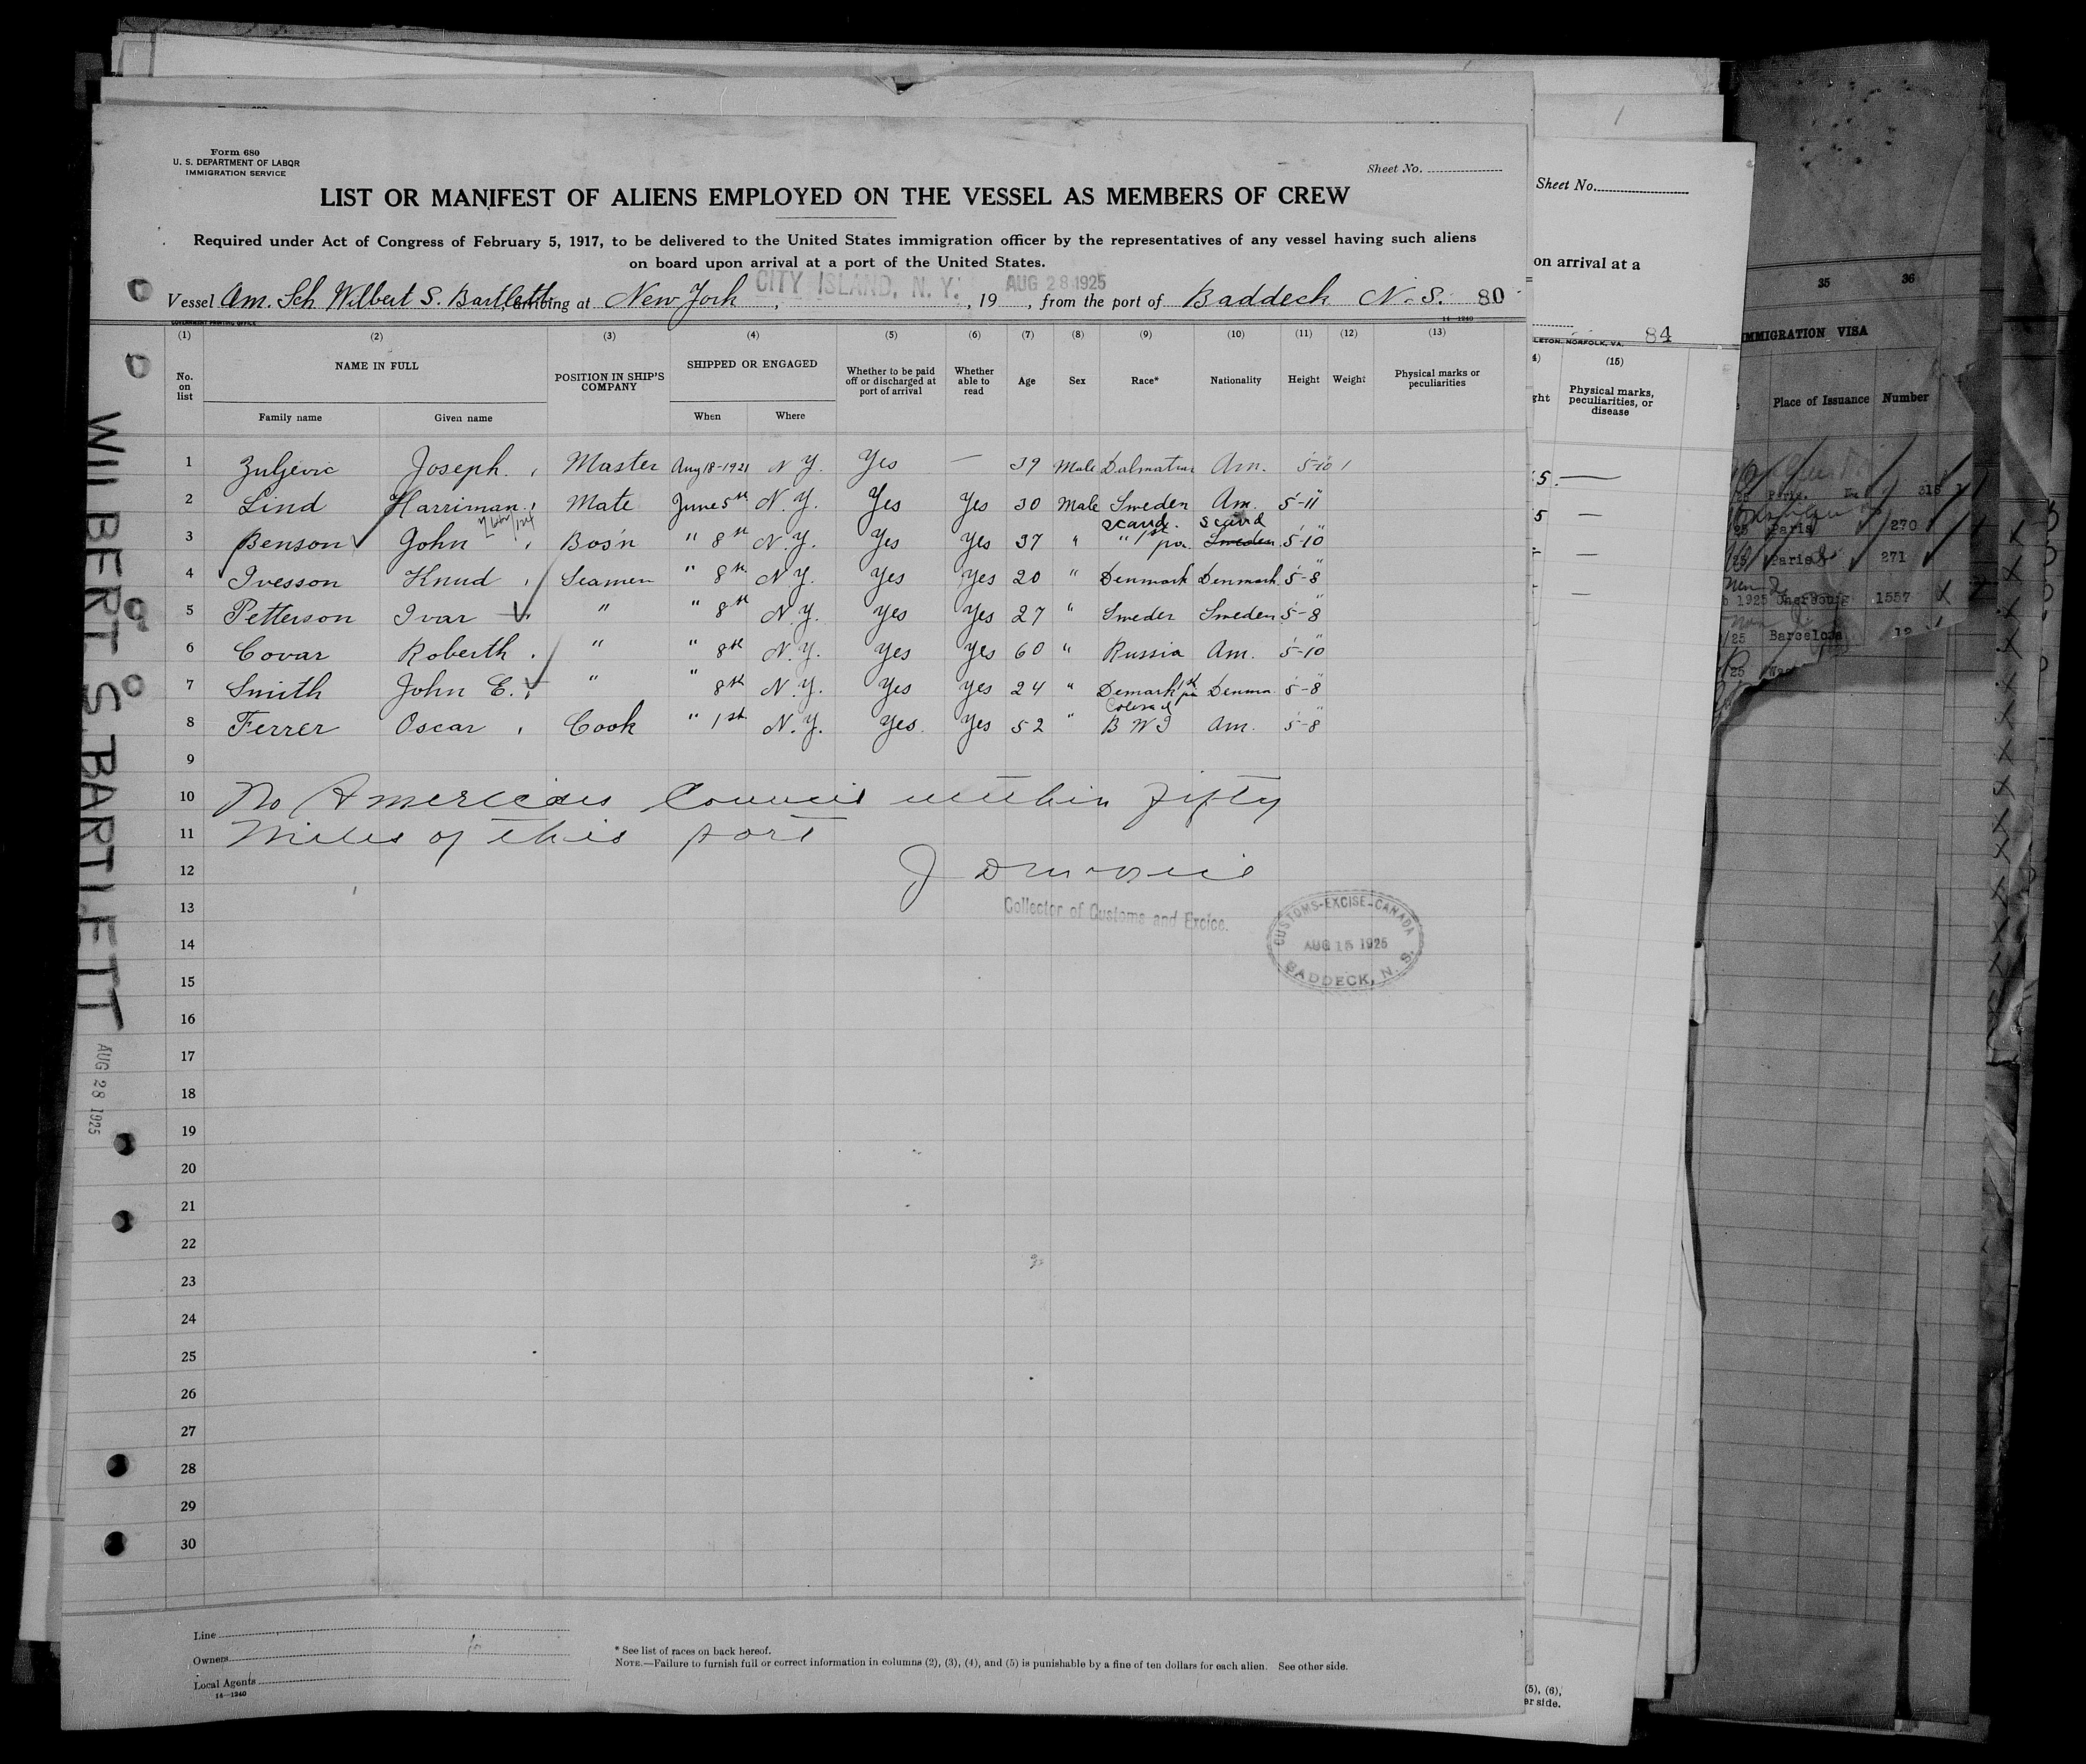 Form 680
U. S. DEPARTMENT OF LABOR
IMMIGRATION SERVICE
Sheet No.
LIST OR MANIFEST OF ALIENS EMPLOYED ON THE VESSEL AS MEMBERS OF CREW
Required under Act of Congress of February 5, 1917, to be delivered to the United States immigration officer by the representatives of any vessel having such aliens
on board upon arrival at a port of the United States.
CITY ISLAND, N. Y. AUG 28 1925
Vessel Am. Sch Wilbert S. Bartlett, arriving at New York, 19 , from the port of Baddeck N.S. 80
GOVERNMENT PRINTING OFFICE 14—1240
(1) (2) (3) (4) (5) (6) (7) (8) (9) (10) (11) (12) (13)
No. on list NAME IN FULL POSITION IN SHIP'S COMPANY SHIPPED OR ENGAGED Whether to be paid off or discharged at port of arrival Whether able to read Age Sex Race* Nationality Height Weight Physical marks or peculiarities
Family name Given name When Where
1 Zuljevic Joseph. Master Aug 18-1921 N Y. Yes — 39 Male Dalmatian Am. 5-10
2 Lind Harriman. Mate June 5th N.Y. Yes Yes 30 Male Sweden Am. 5-11
Scand. Scand
3 Benson John Bos'n " 8th N.Y. Yes Yes 37 " " 1st pa. Sweden 5-10
4 Ivesson Knud Seamen " 8th N.Y. Yes Yes 20 " Denmark Denmark 5-8
5 Petterson Ivar " " 8th N.Y. Yes Yes 27 " Sweden Sweden 5-8
6 Covar Roberth. " " 8th N.Y. Yes Yes 60 " Russia Am. 5-10
7 Smith John E. " " 8th N.Y. Yes Yes 24 " Demark 1st pa Denma. 5-8
Colored
8 Ferrer Oscar Cook " 1st N.Y. Yes. Yes 52 " B W I Am. 5-8
9
10 No American Council within Fifty
11 Miles of this port
12
13 Collector of Customs and Excise.
CUSTOMS-EXCISE-CANADA
AUG 15 1925
BADDECK, N. S.
14
15
16
17
18
19
20
21
22
23
24
25
26
27
28
29
30
Line
Owners
Local Agents
14—1240
* See list of races on back hereof.
NOTE.—Failure to furnish full or correct information in columns (2), (3), (4), and (5) is punishable by a fine of ten dollars for each alien. See other side.
WILBERT S. BARTLETT AUG 28 1925
Sheet No.
on arrival at a
84
LETON, NORFOLK, VA.
(15)
ght Physical marks, peculiarities, or disease
5. —
5 —
—
—
(5), (6),
er side.
35 36
IMMIGRATION VISA
Place of Issuance Number
25 Paris. 315
25 Paris 270
25 Paris 271
1925 Cherbourg 1557
/25 Barcelona 19
/25